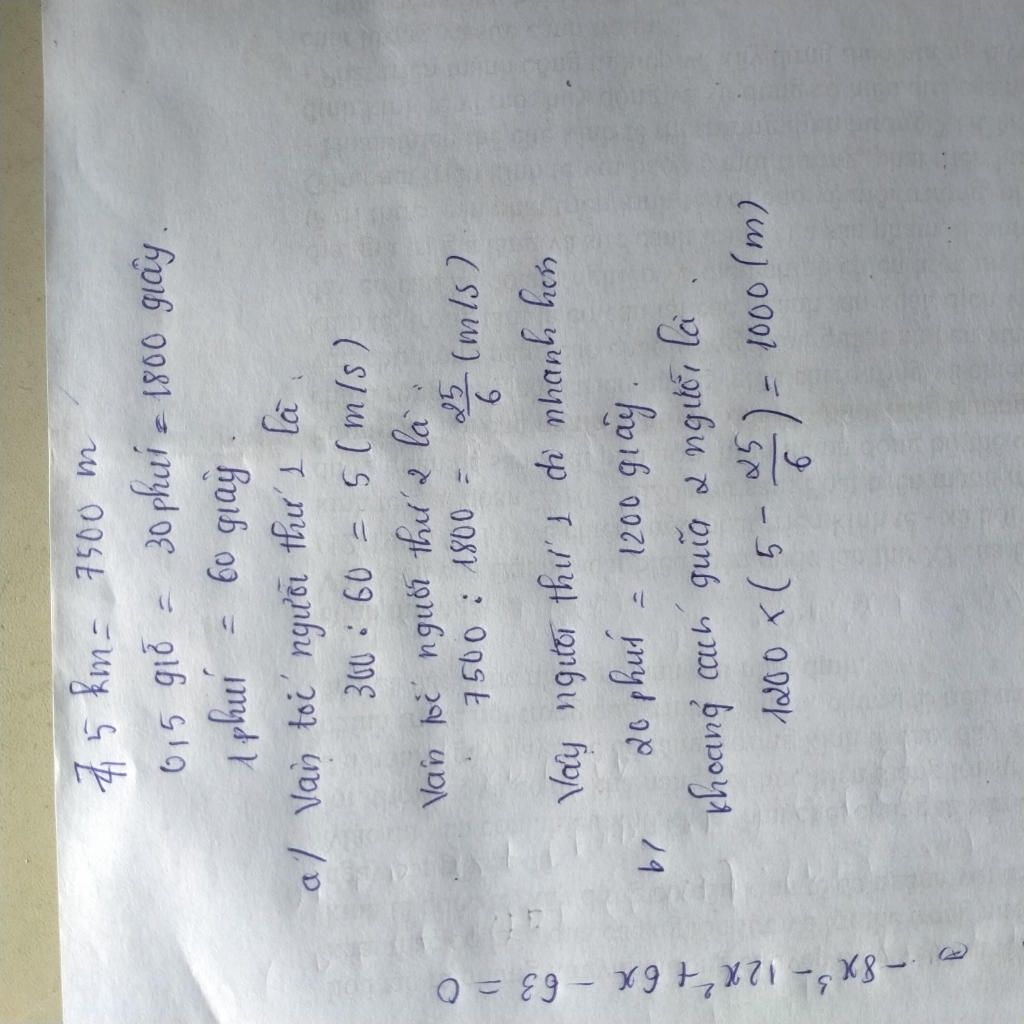 7,5 km = 7500 m
0,5 giờ = 30 phút = 1800 giây.
1 phút = 60 giây
a) Vận tốc người thứ 1 là
300 : 60 = 5 (m/s)
Vận tốc người thứ 2 là
7500 : 1800 = 25/6 (m/s)
Vậy người thứ 1 đi nhanh hơn
b) 20 phút = 1200 giây.
khoảng cách giữa 2 người là.
1200 × (5 - 25/6) = 1000 (m)
⇔ -8x³ - 12x² + 6x - 63 = 0